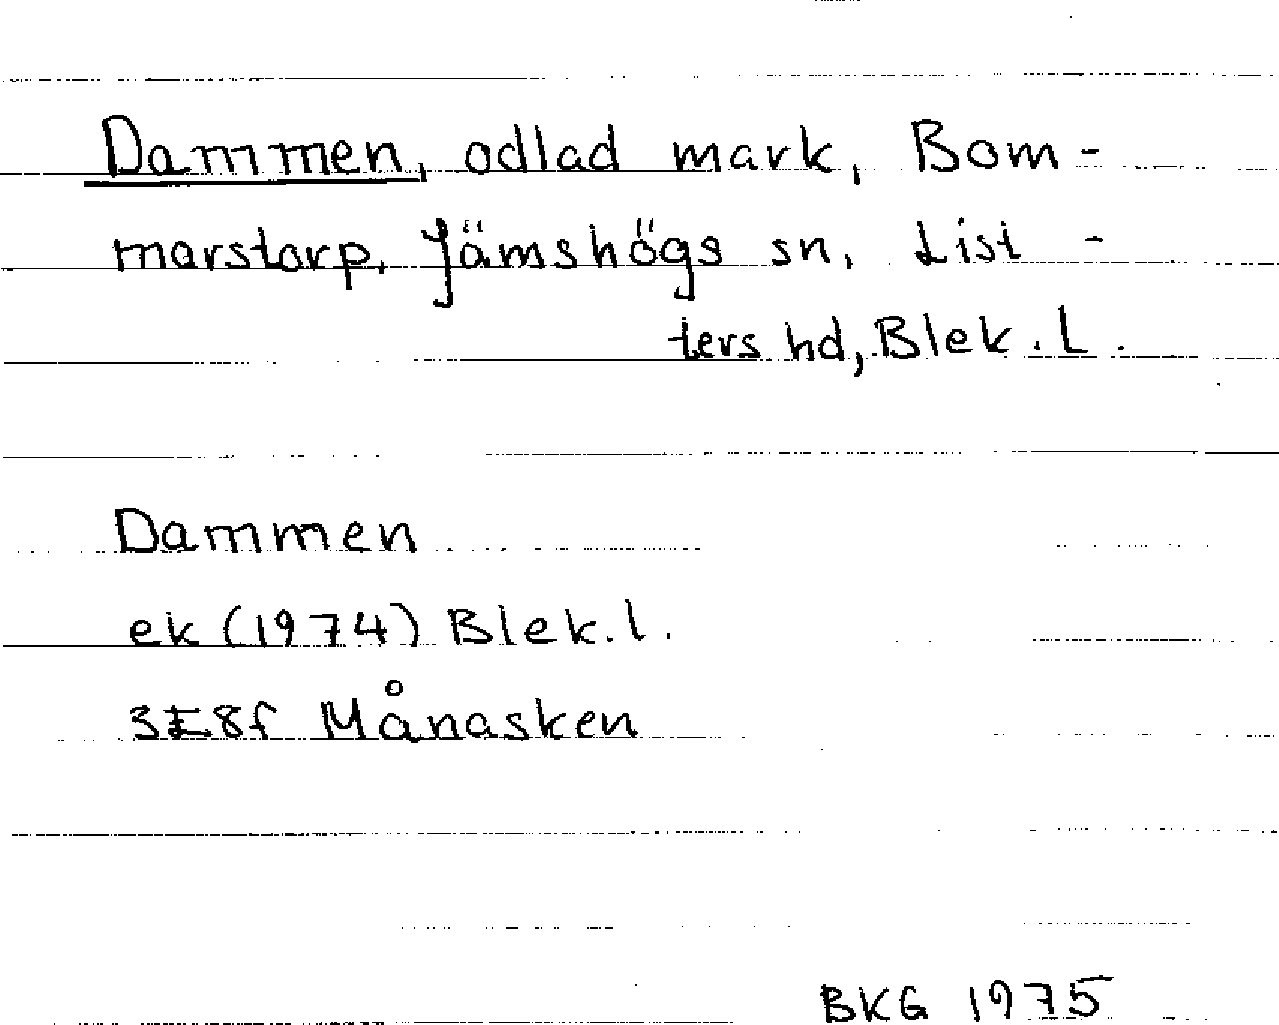 Dammen, odlad mark, Bom-
marstorp, Jämshögs sn, List-
ters hd, Blek. l.
Dammen
ek (1974) Blek. l.
3E8f Månasken
BKG 1975